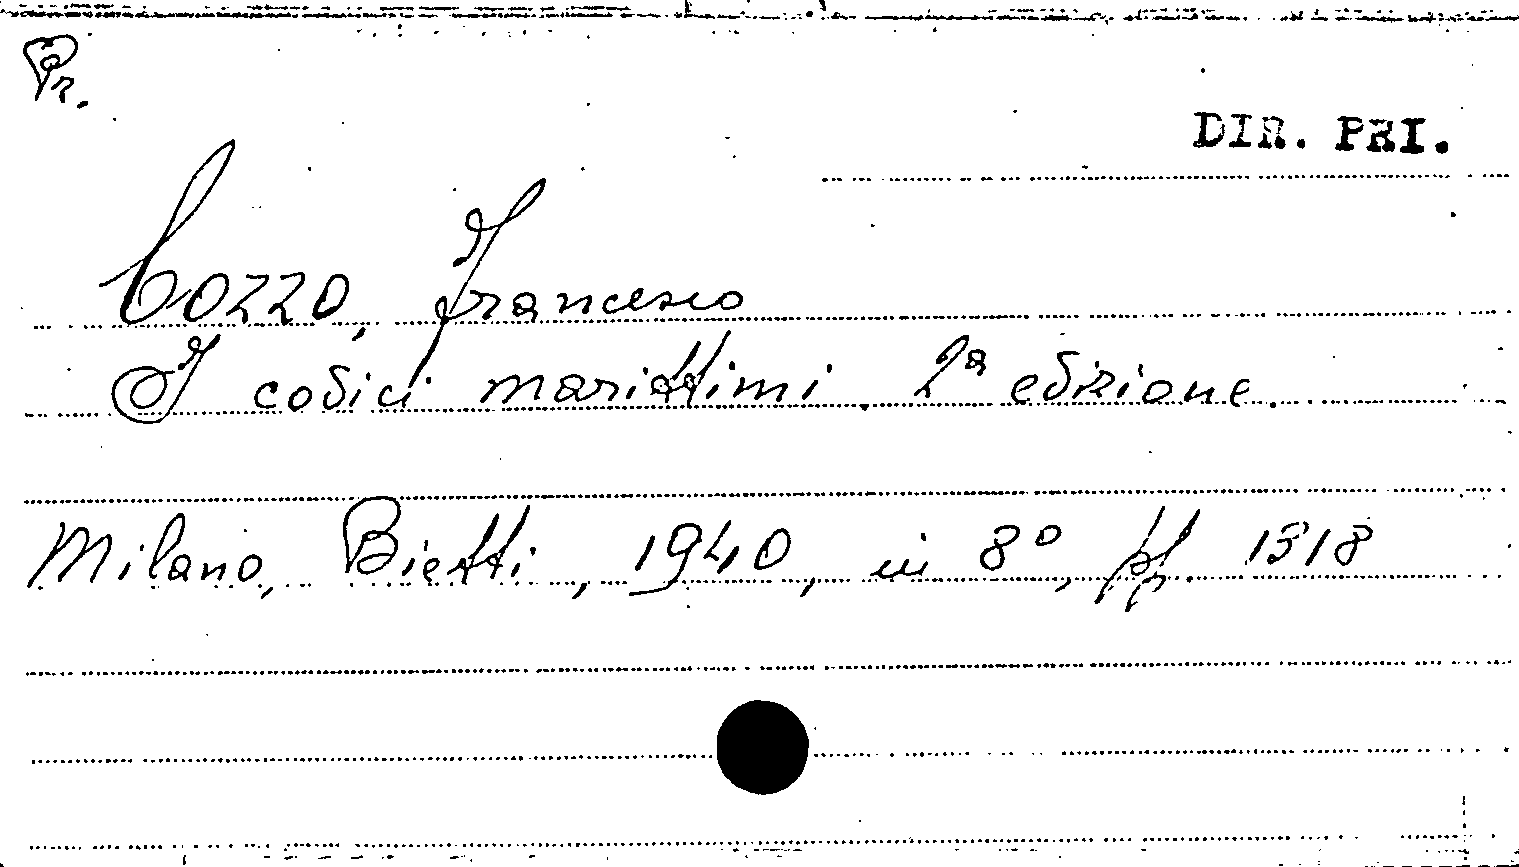 Pr.
DIR. PRI.
Cozzo, Francesco
I codici marittimi. 2ª edizione.
Milano, Bietti, 1940, in 8°, pp. 1318